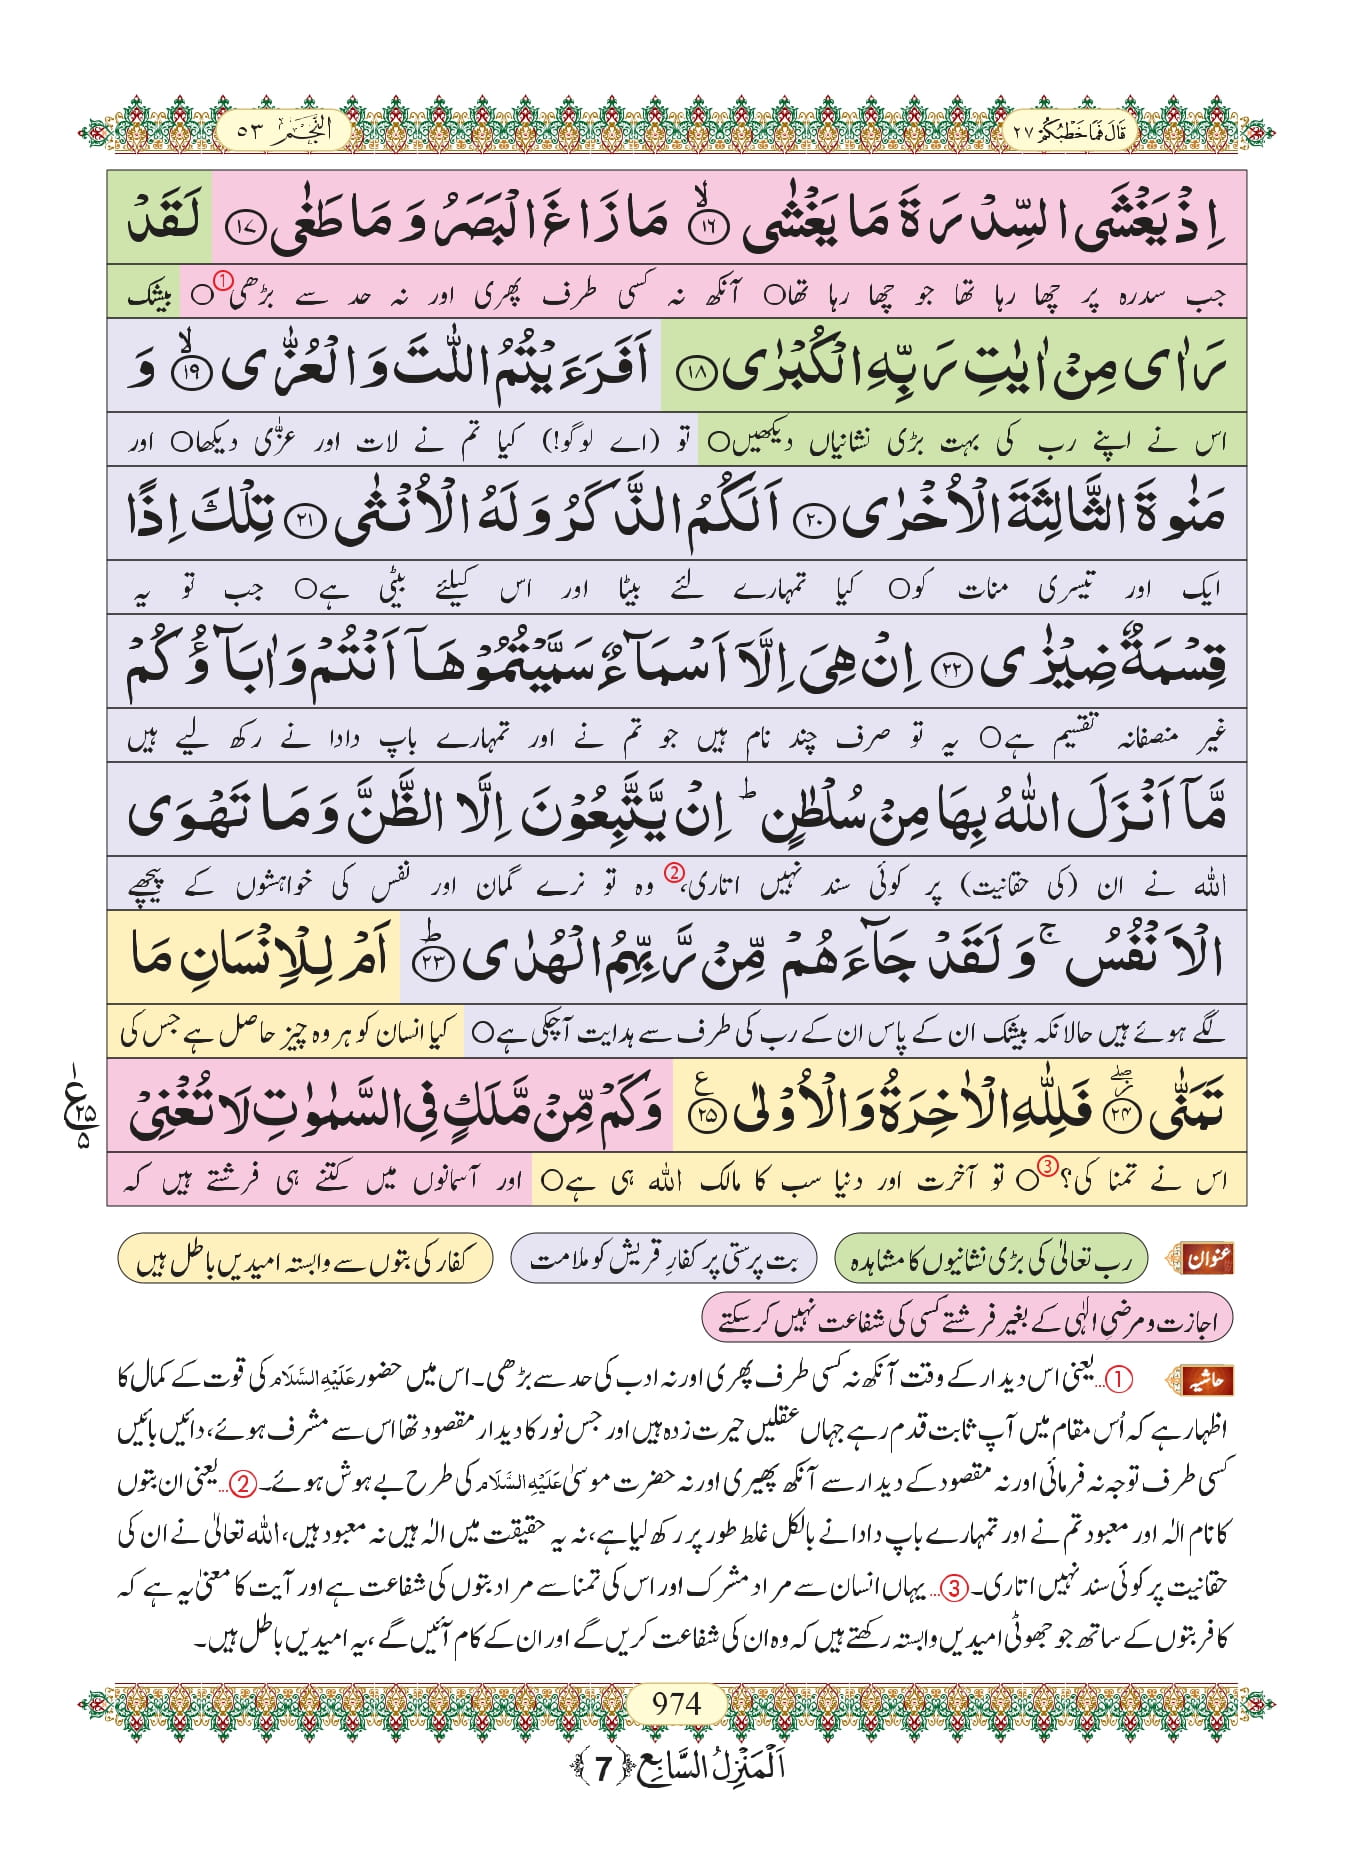 قَالَ فَمَا خَطْبُكُمْ ۲۷
اَلنَّجْم ۵۳
اِذْ یَغْشَى السِّدْرَةَ مَا یَغْشٰى ۙ﴿۱۶﴾ مَا زَاغَ الْبَصَرُ وَ مَا طَغٰى ﴿۱۷﴾ لَقَدْ
جب سدرہ پر چھا رہا تھا جو چھا رہا تھا○ آنکھ نہ کسی طرف پھری اور نہ حد سے بڑھی①○ بیشک
رَاٰى مِنْ اٰیٰتِ رَبِّهِ الْكُبْرٰى ﴿۱۸﴾ اَفَرَءَیْتُمُ اللّٰتَ وَ الْعُزّٰى ۙ﴿۱۹﴾ وَ
اس نے اپنے رب کی بہت بڑی نشانیاں دیکھیں○ تو (اے لوگو!) کیا تم نے لات اور عزّٰی دیکھا○ اور
مَنٰوةَ الثَّالِثَةَ الْاُخْرٰى ﴿۲۰﴾ اَلَكُمُ الذَّكَرُ وَ لَهُ الْاُنْثٰى ﴿۲۱﴾ تِلْكَ اِذًا
ایک اور تیسری منات کو○ کیا تمہارے لئے بیٹا اور اس کیلئے بیٹی ہے○ جب تو یہ
قِسْمَةٌ ضِیْزٰى ﴿۲۲﴾ اِنْ هِیَ اِلَّاۤ اَسْمَآءٌ سَمَّیْتُمُوْهَاۤ اَنْتُمْ وَ اٰبَآؤُكُمْ
غیر منصفانہ تقسیم ہے○ یہ تو صرف چند نام ہیں جو تم نے اور تمہارے باپ دادا نے رکھ لیے ہیں
مَّاۤ اَنْزَلَ اللّٰهُ بِهَا مِنْ سُلْطٰنٍ ؕ اِنْ یَّتَّبِعُوْنَ اِلَّا الظَّنَّ وَ مَا تَهْوَى
اللہ نے ان (کی حقانیت) پر کوئی سند نہیں اتاری،② وہ تو نرے گمان اور نفس کی خواہشوں کے پیچھے
الْاَنْفُسُ ۚ وَ لَقَدْ جَآءَهُمْ مِّنْ رَّبِّهِمُ الْهُدٰى ؕ﴿۲۳﴾ اَمْ لِلْاِنْسَانِ مَا
لگے ہوئے ہیں حالانکہ بیشک ان کے پاس ان کے رب کی طرف سے ہدایت آچکی ہے○ کیا انسان کو ہر وہ چیز حاصل ہے جس کی
تَمَنّٰى ﴿۲۴﴾ فَلِلّٰهِ الْاٰخِرَةُ وَ الْاُوْلٰى ﴿۲۵﴾ وَ كَمْ مِّنْ مَّلَكٍ فِی السَّمٰوٰتِ لَا تُغْنِیْ
ع ۲۵ ۵
اس نے تمنا کی؟③○ تو آخرت اور دنیا سب کا مالک اللہ ہی ہے○ اور آسمانوں میں کتنے ہی فرشتے ہیں کہ
عنوان رب تعالیٰ کی بڑی نشانیوں کا مشاہدہ بت پرستی پر کفارِ قریش کو ملامت کفار کی بتوں سے وابستہ امیدیں باطل ہیں
اجازت و مرضیِ الٰہی کے بغیر فرشتے کسی کی شفاعت نہیں کرسکتے
حاشیہ ①... یعنی اس دیدار کے وقت آنکھ نہ کسی طرف پھری اور نہ ادب کی حد سے بڑھی۔ اس میں حضور عَلَیْہِ السَّلَام کی قوت کے کمال کا
اظہار ہے کہ اُس مقام میں آپ ثابت قدم رہے جہاں عقلیں حیرت زدہ ہیں اور جس نور کا دیدار مقصود تھا اس سے مشرف ہوئے، دائیں بائیں
کسی طرف توجہ نہ فرمائی اور نہ مقصود کے دیدار سے آنکھ پھیری اور نہ حضرت موسیٰ عَلَیْہِ السَّلَام کی طرح بے ہوش ہوئے۔ ②... یعنی ان بتوں
کا نام الٰہ اور معبود تم نے اور تمہارے باپ دادا نے بالکل غلط طور پر رکھ لیا ہے، نہ یہ حقیقت میں الٰہ ہیں نہ معبود ہیں، اللہ تعالیٰ نے ان کی
حقانیت پر کوئی سند نہیں اتاری۔ ③... یہاں انسان سے مراد مشرک اور اس کی تمنا سے مراد بتوں کی شفاعت ہے اور آیت کا معنیٰ یہ ہے کہ
کافر بتوں کے ساتھ جو جھوٹی امیدیں وابستہ رکھتے ہیں کہ وہ ان کی شفاعت کریں گے اور ان کے کام آئیں گے، یہ امیدیں باطل ہیں۔
974
اَلْمَنْزِلُ السَّابِع ﴿7﴾